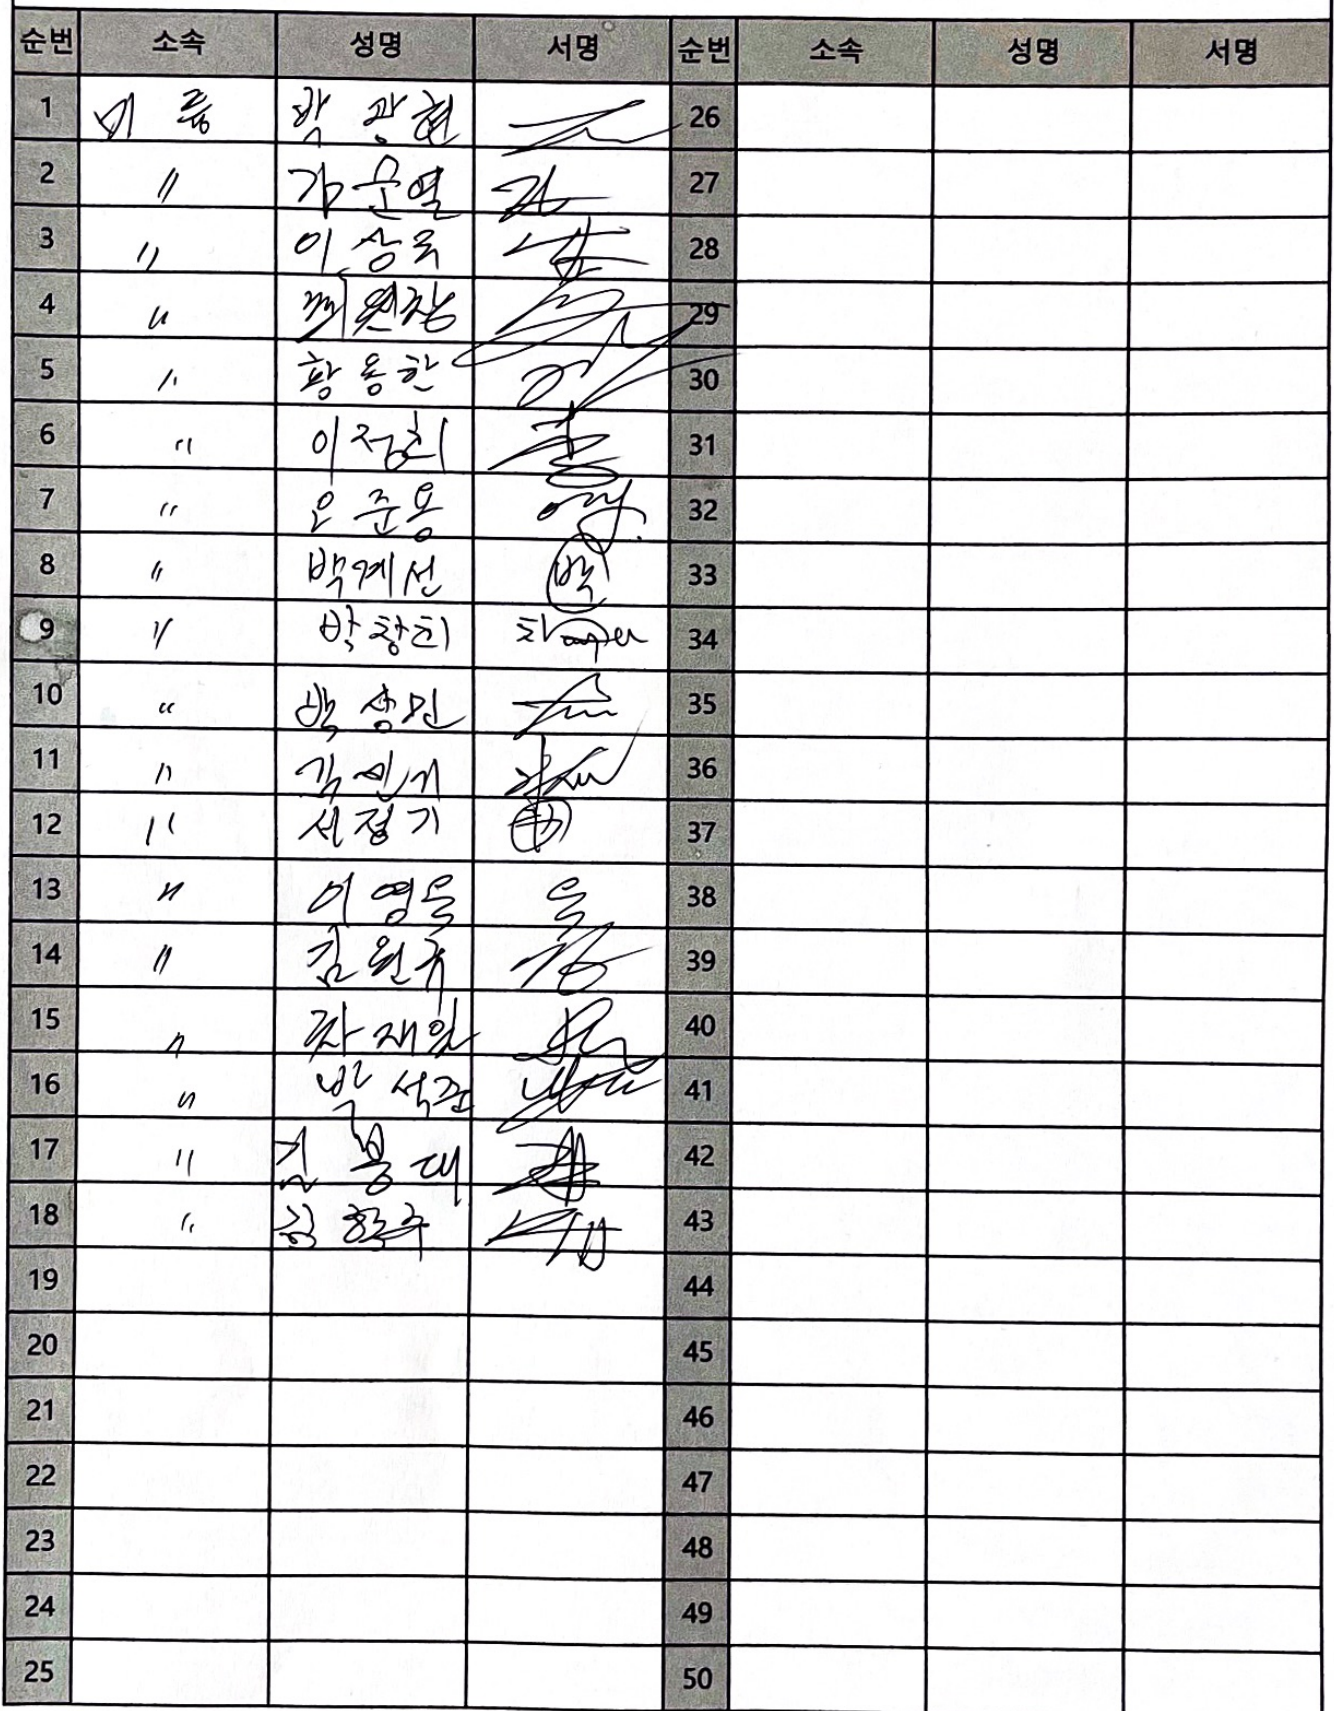 순번 소속 성명 서명 순번 소속 성명 서명
1 박광현 26
2 〃 김운열 27
3 〃 이상욱 28
4 〃 최원창 29
5 〃 황용한 30
6 〃 이정희 31
7 〃 오준용 32
8 〃 박계선 박 33
9 〃 박창희 34
10 〃 박성민 35
11 〃 김민기 36
12 〃 서정기 37
13 〃 이영옥 옥 38
14 〃 김원규 39
15 〃 재일 40
16 〃 박석준 41
17 〃 김봉대 42
18 〃 43
19 44
20 45
21 46
22 47
23 48
24 49
25 50